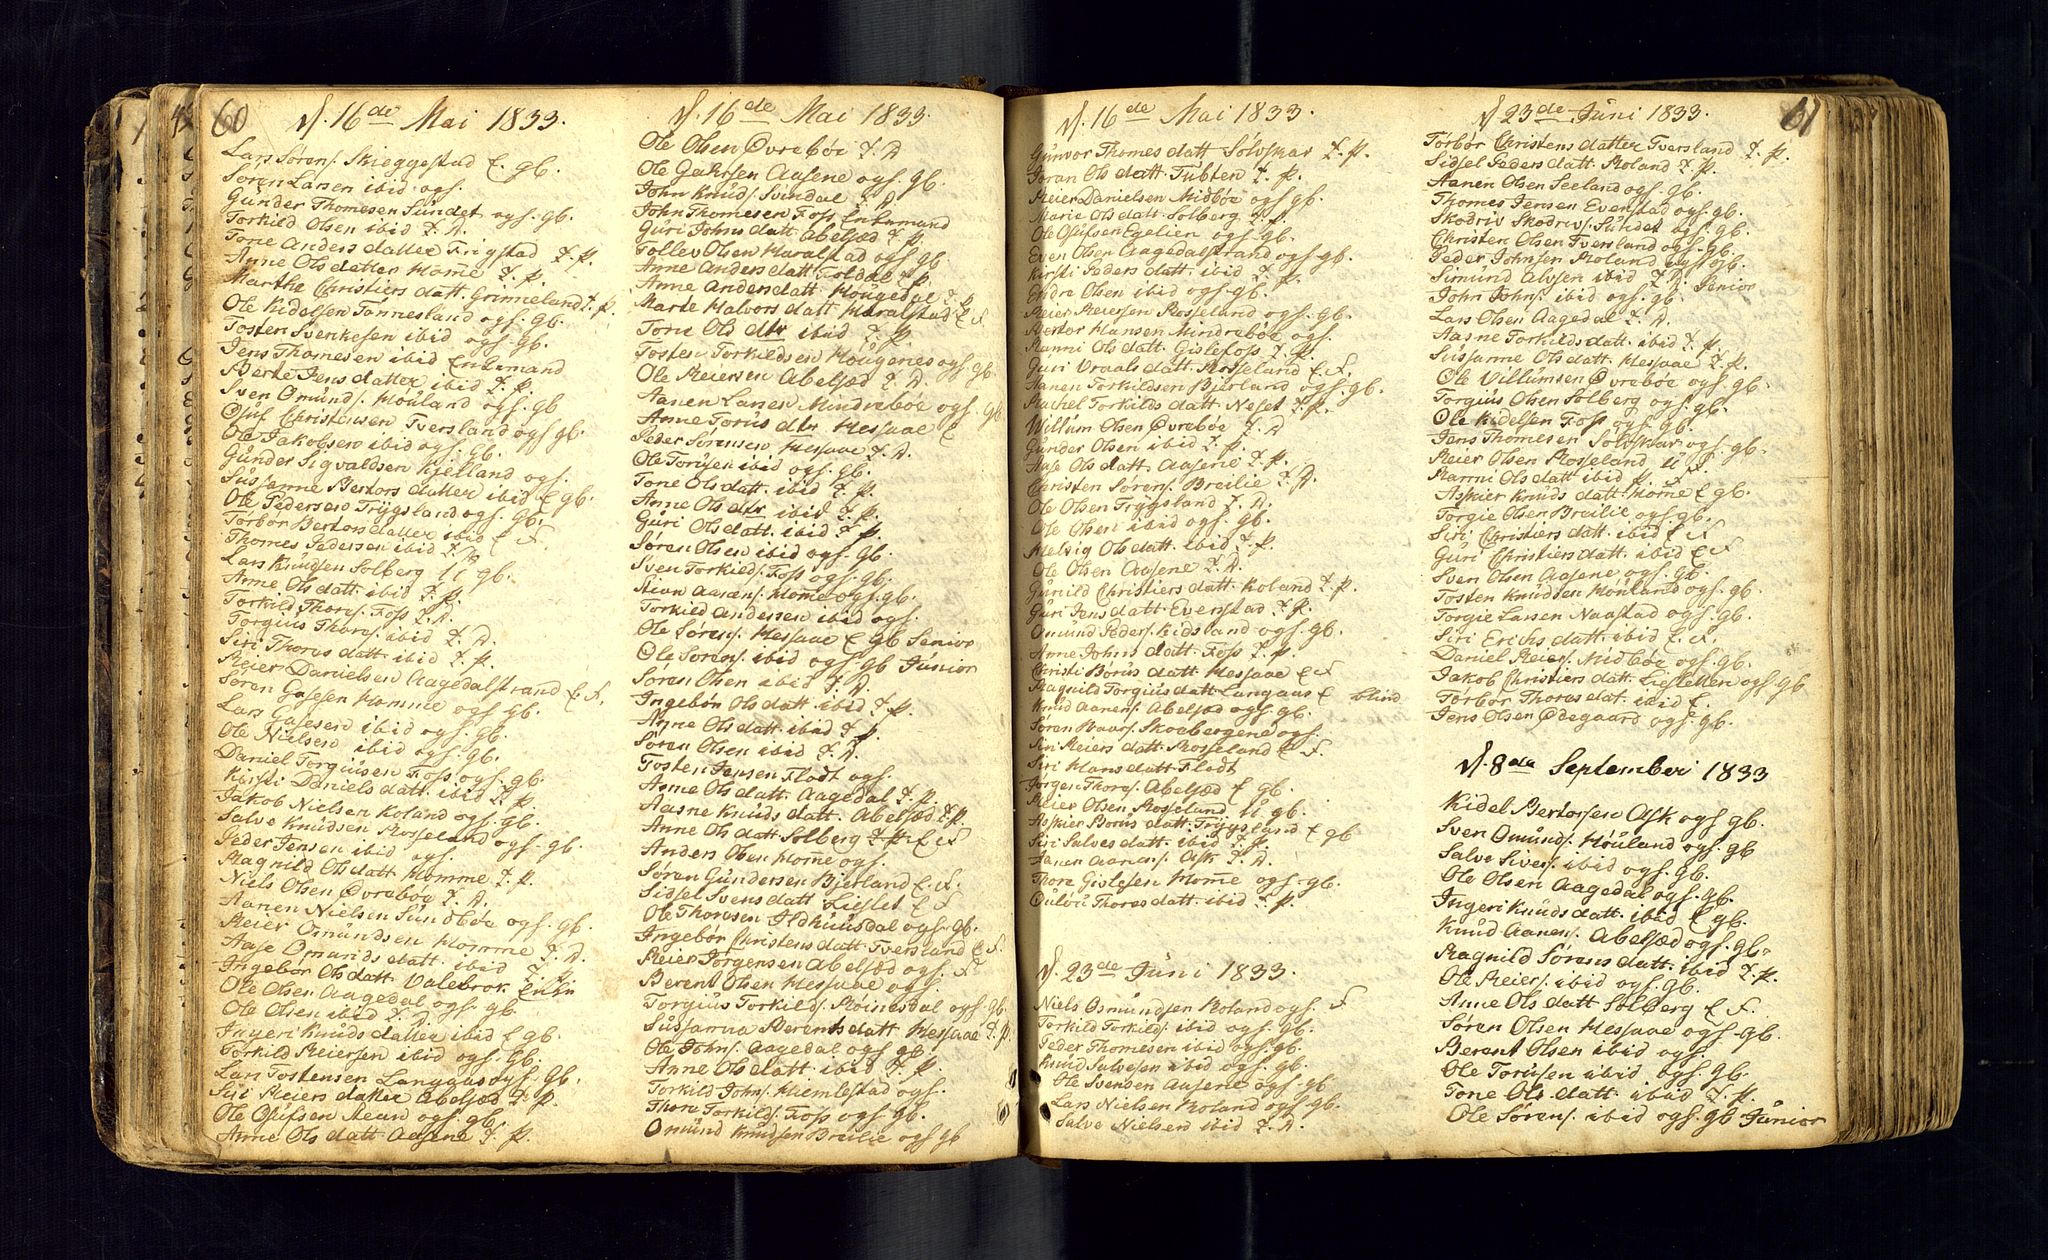 60
d. 16de Mai 1833.
Lars Sørens. Skieggestad E. gb.
Søren Larsen ibid ogs.
Gunder Thomesen Sundet ogs. gb.
Torkild Olsen ibid T. D.
Tone Anders datter Frigstad T. P.
Anne Ols datter Home T. P.
Marthe Christiers datt. Grinneland T. P.
Ole Kidelsen Tønnesland ogs. gb.
Tosten Svenkesen ibid ogs. gb.
Jens Thomesen ibid Enkemand
Berte Jens datter ibid T. P.
Sven Omund. Houland ogs. gb
Osul Christensen Tversland ogs gb.
Ole Jakobsen ibid ogs. gb.
Gunder Sigvaldsen Kjelland ogs.
Sussanne Bertors datter ibid E gb.
Ole Pedersen Trygsland ogs. gb.
Torbor Bertors datter ibid E F.
Thomes Pedersen ibid T. D.
Lars Knudsen Solberg U gb.
Anne Ols datt. ibid T. P.
Torkild Thores. Foss T. D.
Torgius Thores. ibid T. D.
Siri Thores datt ibid T. P.
Reier Danielsen Aagedalstrand E. F.
Søren Gassen Homme ogs gb.
Lars Gasesen ibid ogs. gb.
Ole Nielsen ibid ogs. gb.
Daniel Torgiusen Foss ogs. gb.
Kirsti Daniels datt. ibid T. P.
Jakob Nielsen Roland ogs. gb.
Salve Knudsen Rosseland ogs. gb.
Peder Jensen ibid ogs.
Magnild Ols datt Homme T. P.
Niels Olsen Øvrebøe T. D.
Aanen Nielsen Sundbøe ogs. gb.
Reier Osmundsen Homme T. D.
Aase Omunds datt. ibid T. P.
Ingebor Ols datt Valebrok Enken
Ole Olsen Aagedal ogs. gb.
Ole Olsen ibid T. D.
Ingeri Knuds datter ibid E gb.
Torkild Reiersen ibid ogs. gb.
Lars Tostensen Langgaas ogs. gb.
Siri Reiers datter Abelsæd T. P.
Ole Osulsen ogs. gb.
Anne Ols datt Aasene T. P.
d. 16de Mai 1833.
Ole Olsen Øvrebøe T. D
Ole Gakrsen Aasene ogs. gb.
John Knuds. Svindal T. D
John Thomesen Foss Enkemand
Guri Johns datt Abelsæd T. P.
Tollev Olsen Haralstad ogs gb
Anne Anders datt Foldal T. P.
Anne Anders datt Hougedal T. P.
Marte Halvors datt Haralstad E F
Tone Ols dtr ibid T. P.
Tosten Torkildsen Hougenes ogs. gb.
Ole Reiersen Abelsæd T. D.
Aanen Larsen Mindrebøe ogs. gb
Anne Torus dtr Hessaae E
Peder Sørensen Hessaae T. D.
Ole Torusen ibid ogs. gb.
Tone Ols datt. ibid T. P.
Anne Ols dtr ibid T. P.
Guri Ols datt. ibid T. P.
Søren Olsen ibid ogs. gb.
Sven Torkilds. Foss ogs. gb.
Stian Aasens. Home ogs. gb.
Torkild Andersen ibid ogs.
Ole Sørens. Hessaae E gb Senior
Ole Sørens. ibid ogs gb Junior
Søren Olsen ibid T. D.
Ingebør Ols datt. ibid T. P.
Anne Ols datt. ibid T. P.
Søren Olsen ibid T. D.
Tosten Jensen Flodt ogs.
Anne Ols datt. Aagedal T. P.
Aasne Knuds datt. Abelsæd T. P.
Anne Ols datt Solberg T. P. E F
Anders Olsen Home ogs.
Søren Gundersen Bjerland E. F.
Sidsel Svens datt Lislet E F
Ole Thoresen Ildhuusdal ogs. gb.
Ingebør Christens datt. Tversland E F.
Reier Jørgensen Abelsæd ogs. F.
Berent Olsen Hessaae ogs.
Torgius Torkilds. Røinesdal ogs gb.
Sussanna Berents datt Hessaae T. P.
Ole Johns. Aagedal ogs gb.
Anne Ols datt ibid T. P.
Torkild Johns. Hiemlestad ogs.
Thore Torkilds. Foss ogs. gb.
Omund Knudsen Breilie ogs gb
d. 16de Mai 1833.
Gunvor Thomes datt Solvskar T. P.
Joran Ols datt Tubten T. P.
Reier Danielsen Midbøe ogs gb.
Marie Ols datt Solberg T. P.
Ole Osulsen Egelien ogs. gb.
Even Olsen Aagedalstrand ogs gb.
Kirsti Peders datt. ibid T. P.
Endre Olsen ibid ogs. gb.
Reier Reiersen Rosseland ogs. gb.
Bertor Hansen Mindrebøe ogs.
Ranni Ols datt Gislefoss T. P.
Guri Vraals datt. Rosseland E F.
Aanen Torkildsen Bjerland ogs. gb.
Rachel Torkilds datt Neset T. P.
Willum Olsen Øvrebøe T. D
Gunder Olsen ibid T. P.
Aase Ols datt Aasene T. P.
Christen Sørens. Breilie T. D
Ole Olsen Trygsland T. D.
Ole Olsen ibid ogs. gb.
Helvig Ols datt. ibid T. P.
Ole Olsen Aasene T. D.
Gunild Christiers datt. Roland T. P.
Guri Jens datt. Everstad T. P.
Omund Peders. Kidsland ogs. gb.
Anne Johns datt Foss T. P.
Christi Børus datt Hessaae E F
Magnild Torgius datt Langaas E blind
Knud Aanens. Abelsæd ogs. gb.
Søren Skoebergene ogs.
Siri Reiers datt Rosseland E F.
Siri Hans datt Flodt
Jørgen Thores. Abelsæd E gb.
Reier Olsen Rosseland U. gb.
Askier Børus datt. Trygsland E gb
Siri Salves datt. ibid T. P.
Aanen Aanens. Ask T. D.
Thore Gislesen Home ogs. gb.
Thores datt. ibid T. P.
d. 23de Juni 1833.
Niels Osmundsen Roland ogs. F
Torkild Torkilds. ibid ogs. gb.
Peder Thomesen ibid ogs. gb.
Knud Salvesen ibid ogs. gb.
Ole Svensen Aasene ogs gb
Lars Nielsen Roland ogs gb.
Salve Nielsen ibid T. D.
61
d. 23de Juni 1833.
Torbør Christens datter Tversland T. P.
Sidsel Peders datt. Roland T. P.
Aanen Olsen Seeland ogs. gb.
Thomes Jensen Everstad ogs. gb.
Skodriv Skodrivs. Sundet ogs. gb.
Christen Olsen Tversland ogs. gb.
Peder Johnsen Roland ogs. gb.
Simund Alvsen ibid T. D. Senior
John Johns. ibid ogs. gb.
Lars Olsen Aagedal T. D.
Aasne Torkilds datt. ibid T. P.
Sussanne Ols datt Hessaae T. P.
Ole Villumsen Øvrebøe ogs. gb.
Torgius Olsen Solberg ogs. gb.
Ole Kidelsen Foss ogs. gb.
Jens Thomesen Solvskar ogs. gb.
Reier Olsen Rosseland U F.
Ranni Ols datt ibid T. P.
Askier Knuds datt Home E gb.
Torgie Olsen Breilie ogs. gb.
Siri Christiers datt. ibid E F
Guri Christiers datt. ibid E F
Sven Olsen Aasene ogs. gb.
Tosten Knudsen Houland ogs. gb.
Torgie Larsen Naastad ogs. gb.
Siri Erichs datt. ibid E. F.
Daniel Reiers. Midbøe ogs. gb.
Jakob Christiers datt. Lisletten ogs gb
Torbør Thores dat. ibid E.
Jens Olsen Ødegaard ogs. gb.
d. 8de September 1833
Kidel Bertorsen Ask ogs gb.
Sven Omunds. Houland ogs. gb
Salve Sivers. ibid ogs. gb.
Ole Olsen Aagedal ogs. gb.
Ingeri Knuds datt. ibid E gb.
Knud Aanens. Abelsæd ogs. gb.
Magnild Sørens datt. ibid T. P.
Ole Reiers. ibid ogs. gb.
Anne Ols datt Solberg E F.
Søren Olsen Hessaae ogs. gb.
Berent Olsen ibid ogs.
Ole Torusen ibid ogs. gb.
Tone Ols datt. ibid T. P.
Ole Sørens. ibid ogs. gb Junior